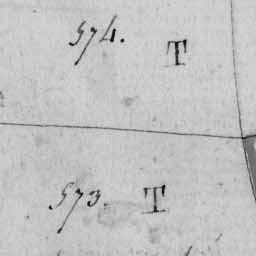 574. T
573. T